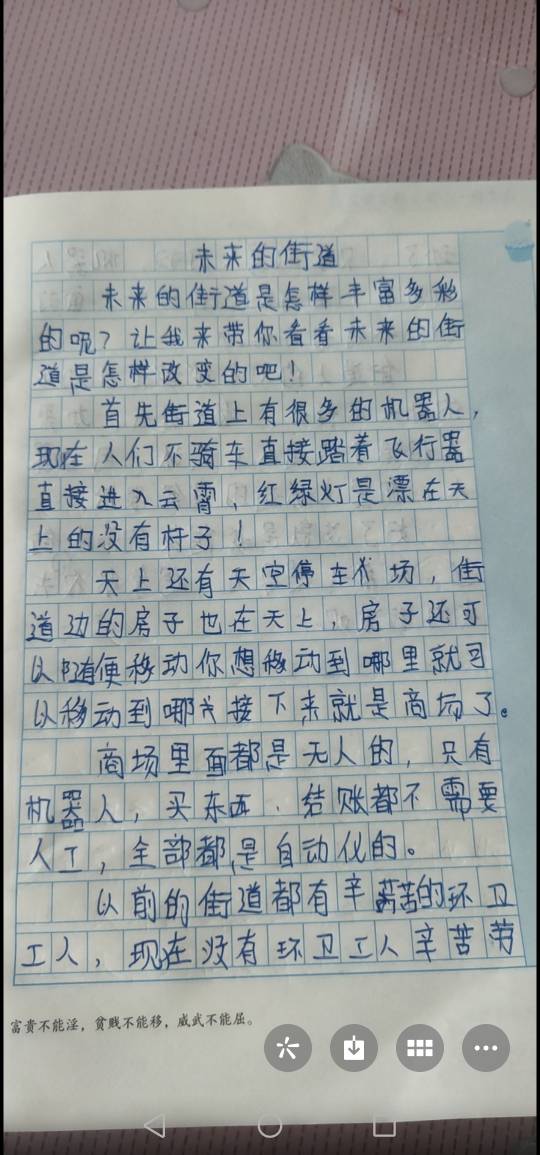 未来的街道
未来的街道是怎样丰富多彩
的呢？让我来带你看看未来的街
道是怎样改变的吧！
首先街道上有很多的机器人，
现在人们不骑车直接踏着飞行器
直接进入云霄，红绿灯是漂在天
上的没有杆子！
天上还有天空停车场，街
道边的房子也在天上，房子还可
以随便移动你想移动到哪里就可
以移动到哪接下来就是商场了。
商场里面都是无人的，只有
机器人，买东西、结账都不需要
人工，全部都是自动化的。
以前的街道都有辛苦的环卫
工人，现在没有环卫工人辛苦劳
富贵不能淫，贫贱不能移，威武不能屈。